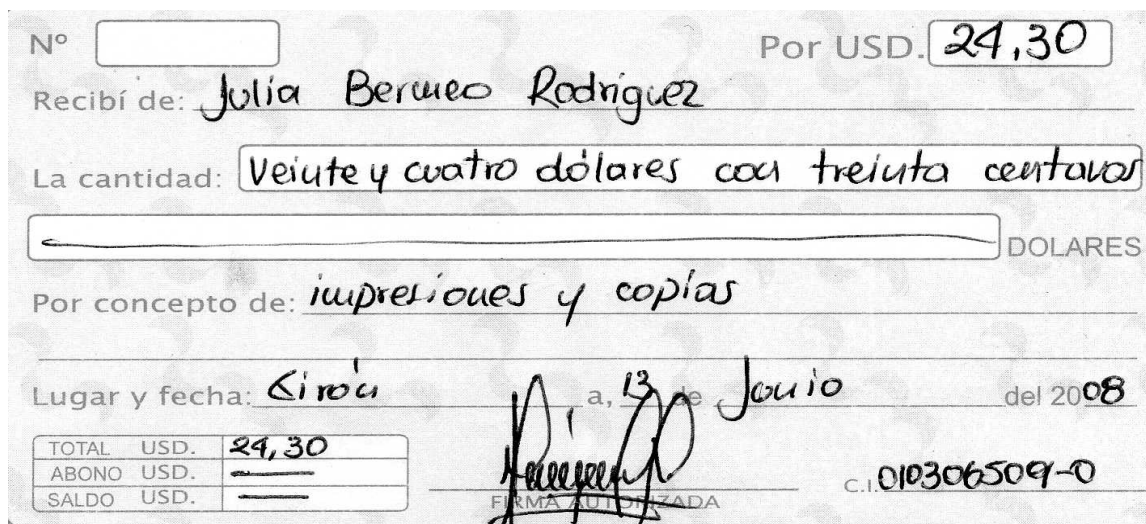 Nº Por USD. 24,30
Recibí de: Julia Bermeo Rodriguez
La cantidad: Veinte y cuatro dólares con treinta centavos
DOLARES
Por concepto de: impresiones y copias
Lugar y fecha: Girón a, 13 de Junio del 2008
TOTAL USD. 24,30
ABONO USD. —
SALDO USD. —
FIRMA AUTORIZADA
C.I. 010306509-0